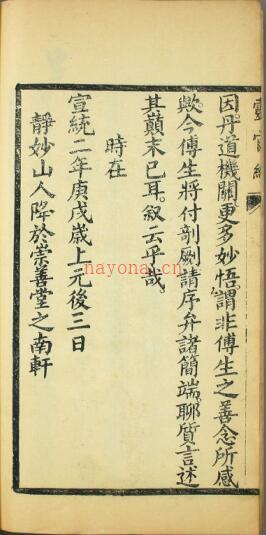 因丹道機關更多妙悟謂非傅生之善念所感
歟今傅生將付剞劂請序弁諸簡端聊質言述
其巔末已耳敘云乎哉
時在
宣統二年庚戌歲上元後三日
靜妙山人降於崇善堂之南軒
nayona.cn